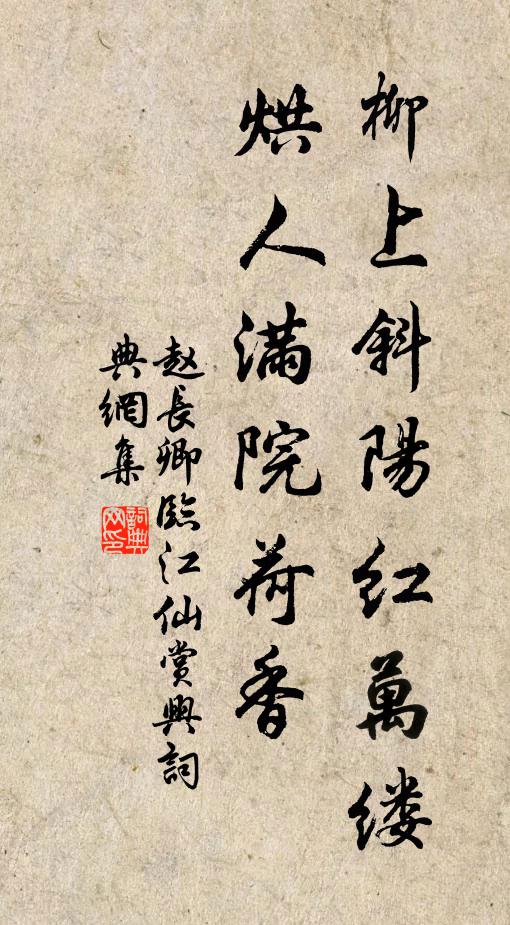 柳上斜陽红萬缕
烘人滿院荷香
赵長卿臨江仙賞興詞
典網集
詞典網印